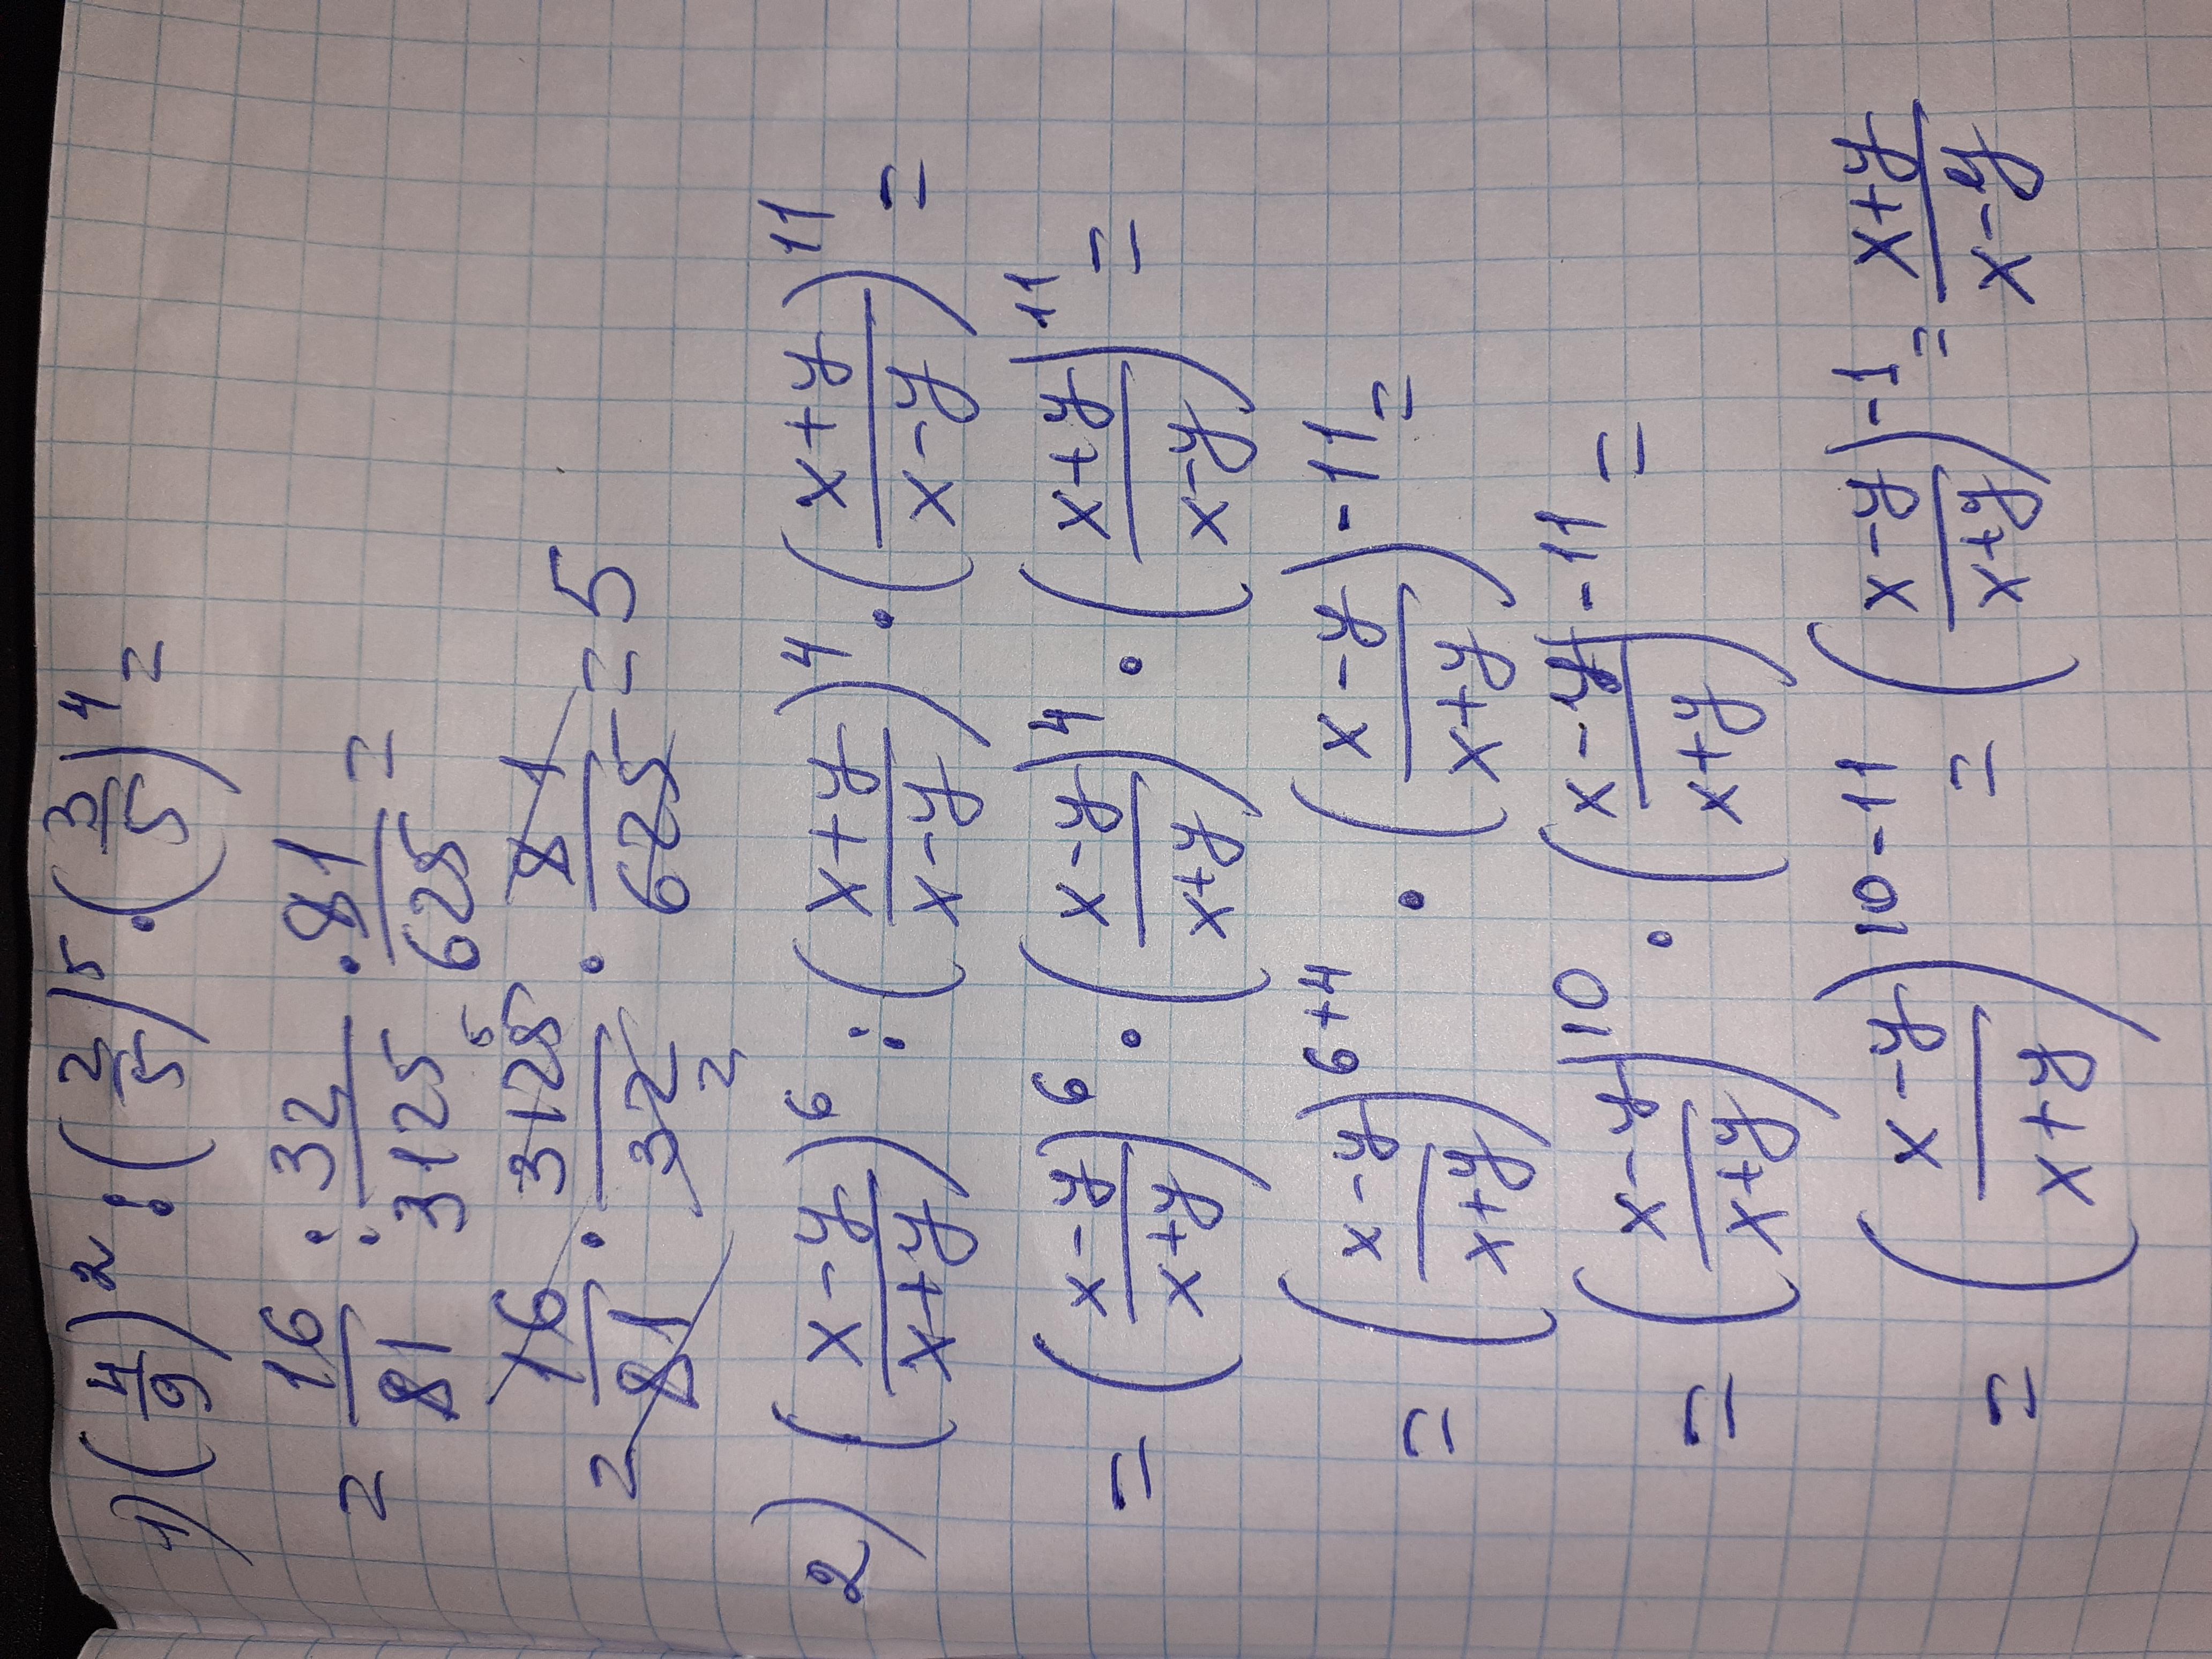 1) (4/9)^2 : (2/5)^5 · (3/5)^4 =
= 16/81 : 32/3125 · 81/625 =
= 16/81 · 3125 5/32 2 · 81/625 = 5
2) ((x-y)/(x+y))^6 : ((x+y)/(x-y))^4 · ((x+y)/(x-y))^11 =
= ((x-y)/(x+y))^6 · ((x-y)/(x+y))^4 · ((x+y)/(x-y))^11 =
= ((x-y)/(x+y))^6+4 · ((x-y)/(x+y))^-11 =
= ((x-y)/(x+y))^10 · ((x-y)/(x+y))^-11 =
= ((x-y)/(x+y))^10-11 = ((x-y)/(x+y))^-1 = (x+y)/(x-y)